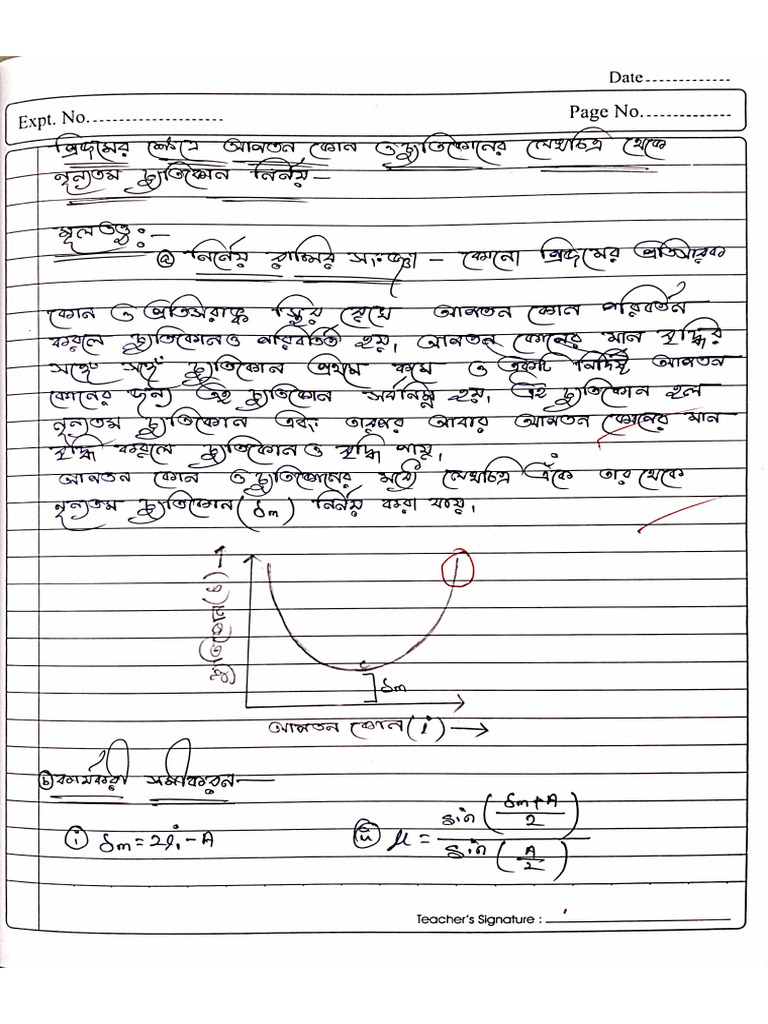 Date
Expt. No.
Page No.
প্রিজমের ক্ষেত্রে আপতন কোন ও চ্যুতিকোনের লেখচিত্র থেকে
নূন্যতম চ্যুতিকোন নির্নয় –
মূলতত্ত্ব :-
ⓐ নির্নেয় রাশির সংজ্ঞা – কোনো প্রিজমের প্রতিসারক
কোন ও প্রতিসরাঙ্ক স্থির রেখে আপতন কোন পরিবর্তন
করলে চ্যুতিকোনও পরিবর্তিত হয়। আপতন কোনের মান বৃদ্ধির
সঙ্গে সঙ্গে চ্যুতিকোন প্রথমে কমে ও একটি নির্দিষ্ট আপতন
কোনের জন্য এই চ্যুতিকোন সর্বনিম্ন হয়। এই চ্যুতিকোন হল
নূন্যতম চ্যুতিকোন এবং তারপর আবার আপতন কোনের মান
বৃদ্ধি করলে চ্যুতিকোনও বৃদ্ধি পায়।
আপতন কোন ও চ্যুতিকোনের মধ্যে লেখচিত্র এঁকে তার থেকে
নূন্যতম চ্যুতিকোন (δm) নির্নয় করা যায়।
চ্যুতিকোন (δ) →
δm
আপতন কোন (i) →
ⓑ কার্যকরী সমীকরন —
ⓘ δm = 2i - A
ⓘⓘ μ = sin((δm+A)/2) / sin(A/2)
Teacher's Signature :